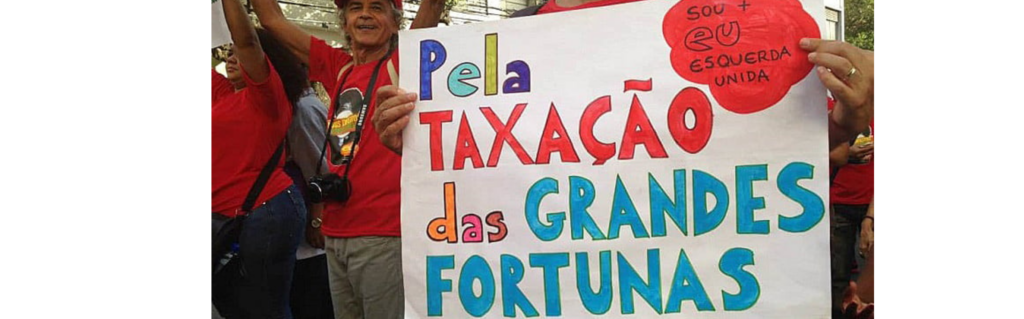 Pela
TAXAÇÃO
das GRANDES
FORTUNAS
SOU +
EU
ESQUERDA
UNIDA